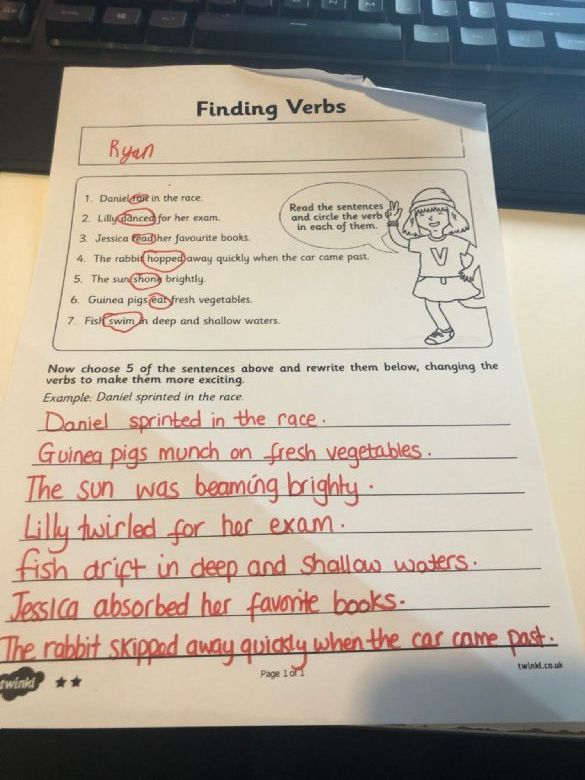 Finding Verbs
Ryan
1. Daniel ran in the race.
2. Lilly danced for her exam.
3. Jessica read her favourite books.
4. The rabbit hopped away quickly when the car came past.
5. The sun shone brightly.
6. Guinea pigs eat fresh vegetables.
7. Fish swim in deep and shallow waters.
Read the sentences
and circle the verb
in each of them.
V
Now choose 5 of the sentences above and rewrite them below, changing the
verbs to make them more exciting.
Example: Daniel sprinted in the race.
Daniel sprinted in the race.
Guinea pigs munch on fresh vegetables.
The sun was beaming brighty.
Lilly twirled for her exam.
fish drift in deep and shallow waters.
Jessica absorbed her favorite books.
The rabbit skipped away quickly when the car came past.
twinkl
Page 1 of 1
twinkl.co.uk